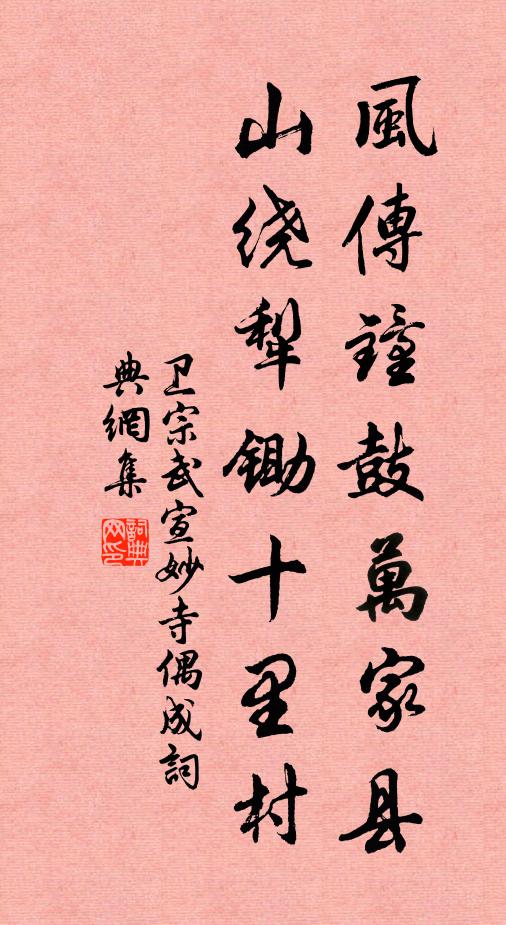 風傳鐘鼓萬家县
山绕犁鋤十里村
卫宗武宣妙寺偶成詞
典網集
詞典
网印